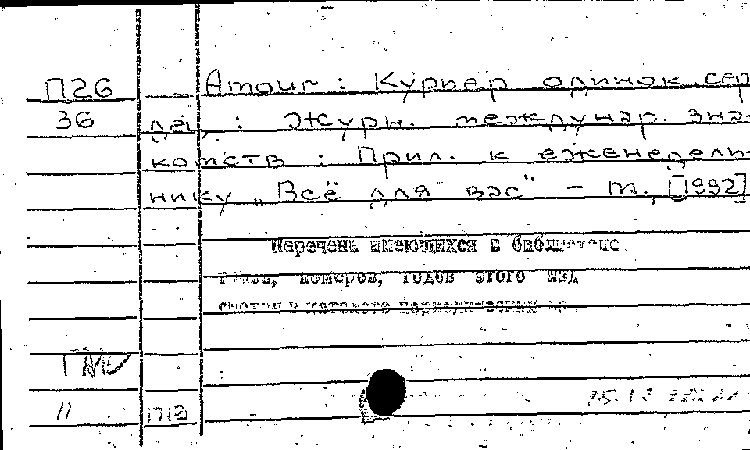 П26 Amour : Курьер одинок. сер
36 дец : Журн. междунар. зна-
комств : Прил. к еженедель-
нику „Всё для вас“ – М., [1992]
Перечень имеющихся в библиотеке
томов, номеров, годов этого изд
смотри в каталоге периодических
11 П13